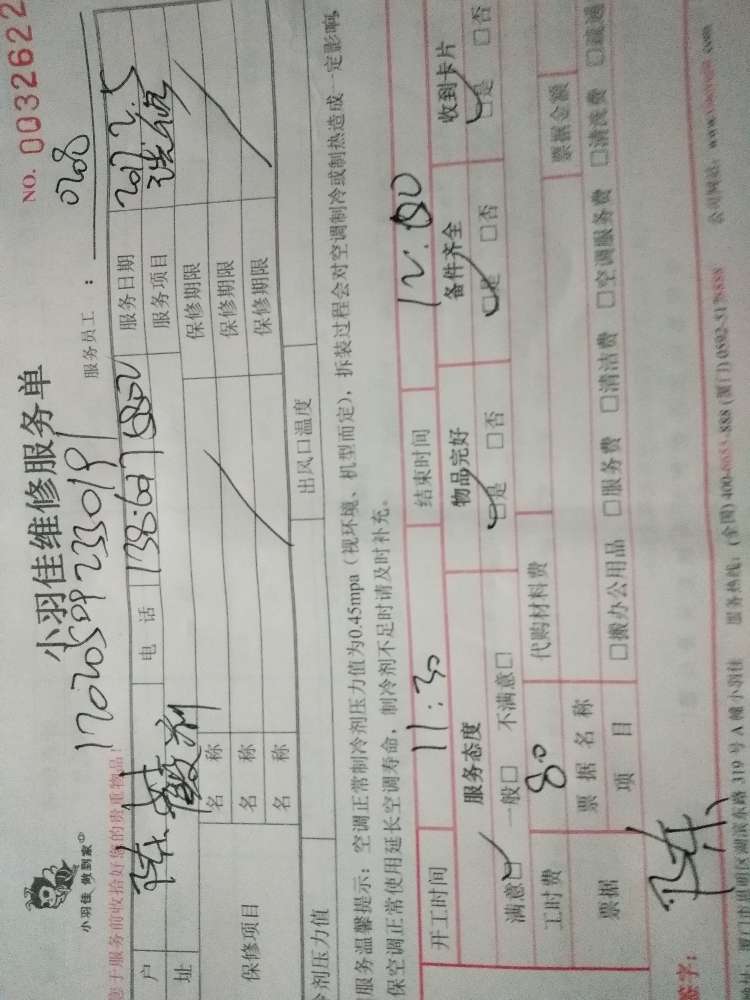 NO. 0032622
小羽佳 做到家
小羽佳维修服务单
服务员工：0208
您于服务前收拾好您的贵重物品！
户
电 话
服务日期 2017.2.5
址
服务项目
保修项目
名 称
保修期限
名 称
保修期限
名 称
保修期限
冷剂压力值
出风口温度
服务温馨提示：空调正常制冷剂压力值为0.45mpa（视环境、机型而定），拆装过程会对空调制冷或制热造成一定影响，
保空调正常使用延长空调寿命，制冷剂不足时请及时补充。
开工时间 11:30 结束时间 12:00
服务态度 物品完好 备件齐全 收到卡片
满意□ 一般□ 不满意□ □是 □否 □是 □否 □是 □否
工时费 80 代购材料费
票据 票据名称 票据金额
项 目 □搬办公用品 □服务费 □清洁费 □空调服务费 □清洗费 □疏通
签字： 陈
厦门市思明区湖滨东路 319 号 A 幢小羽佳 服务热线：(全国)
公司网站：